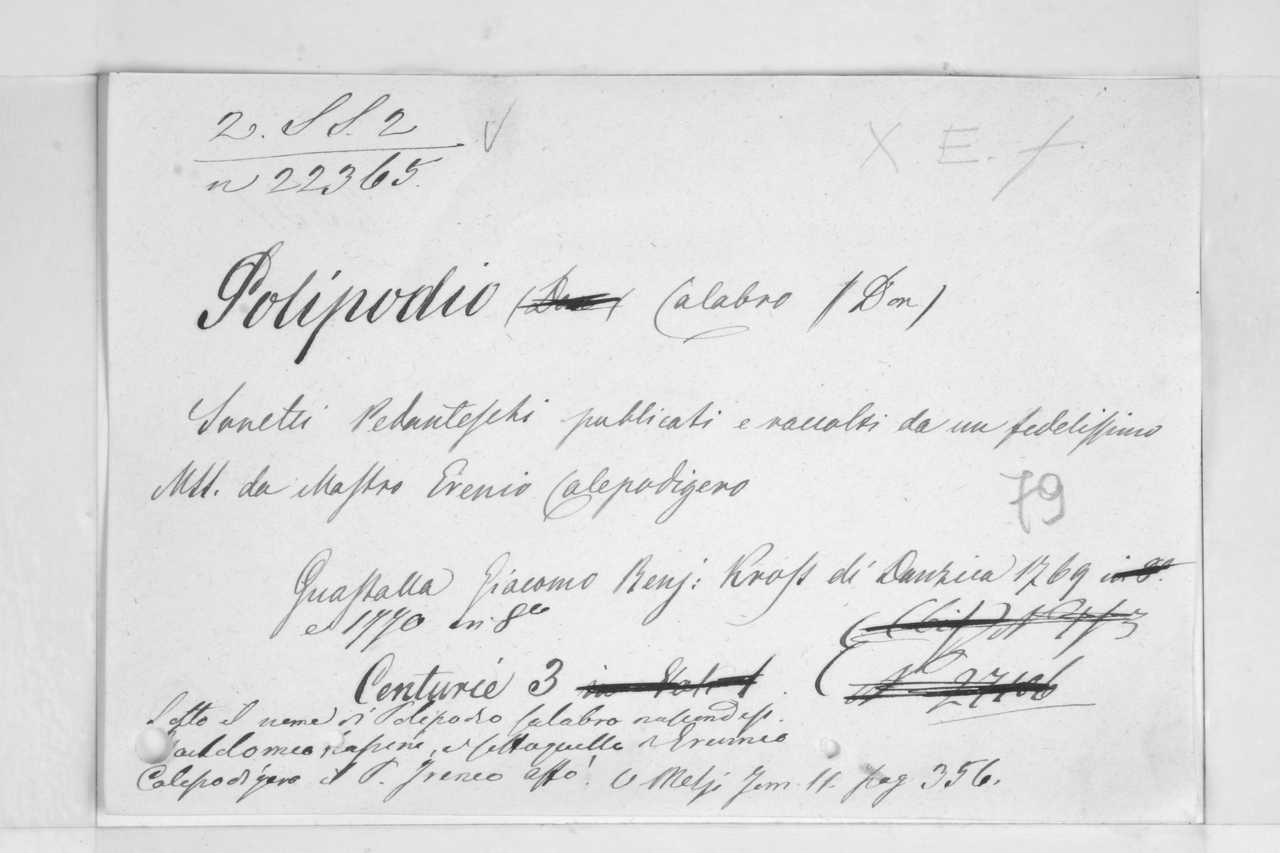 2. S S. 2
n 22365.
X E. f.
Polipodio (Don) Calabro (Don)
Sonetti Pedanteschi publicati e raccolti da un fedelissimo
MSS. da Mastro Erenio Calepodigero
79
Guastalla Giacomo Benj: Kross di Danzica 1769 in 8º
e 1770 in 8vo
Centurie 3
Nº 27106
Sotto il nome di Polipodio Calabro nascondesi
Casapini, e sotto quello d'
Calepodigero il P. Ireneo Affò. V Melzi Tom. II. pag 356.